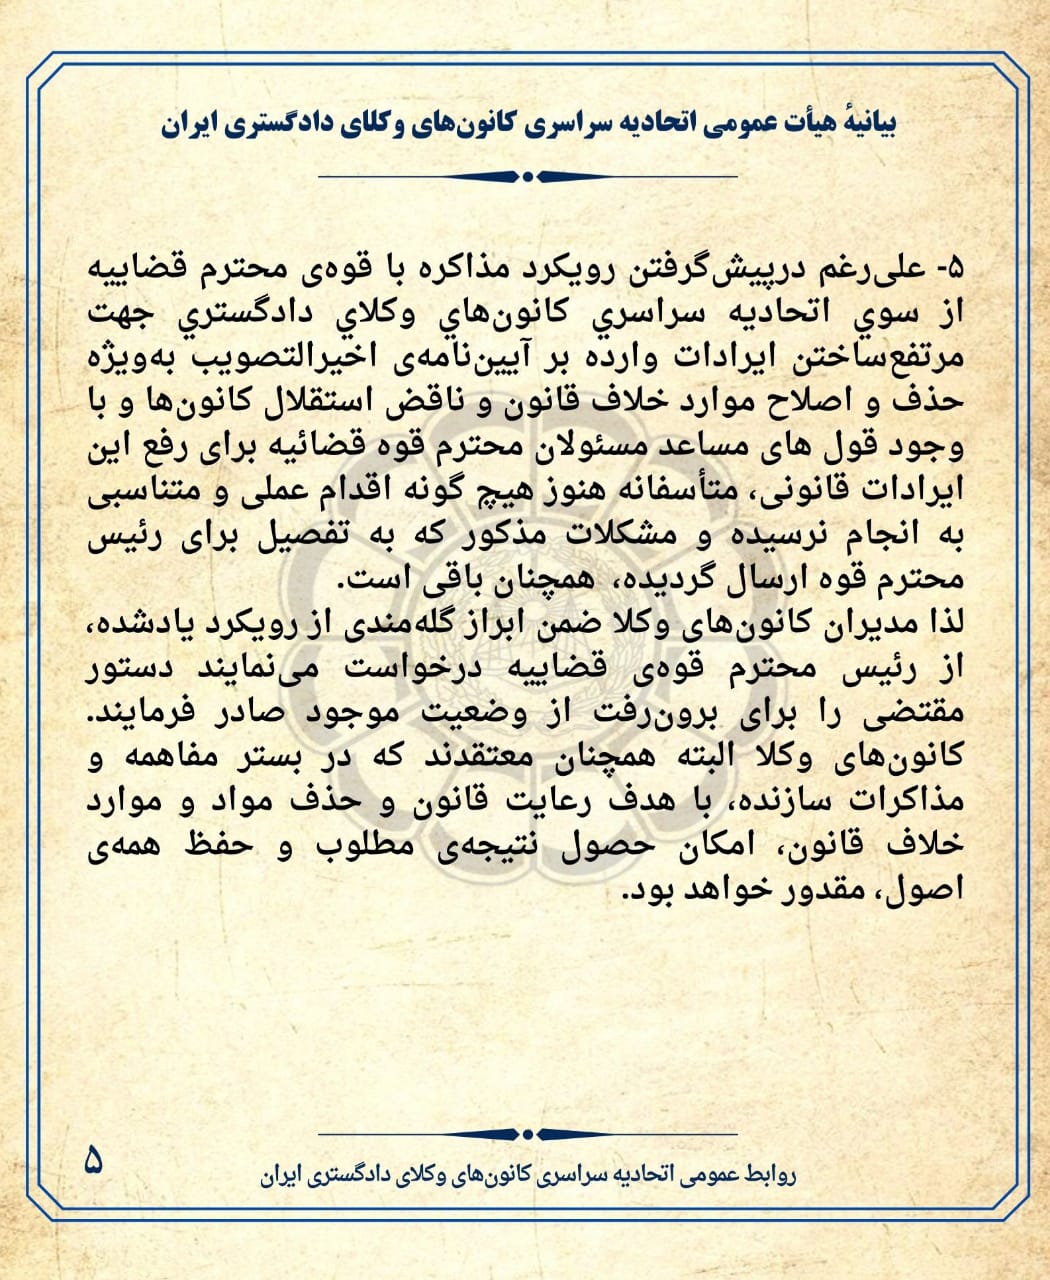 بیانیهٔ هیأت عمومی اتحادیه سراسری کانون‌های وکلای دادگستری ایران
۵- علی‌رغم درپیش‌گرفتن رویکرد مذاکره با قوه‌ی محترم قضاییه
از سوي اتحادیه سراسري کانون‌هاي وکلاي دادگستري جهت
مرتفع‌ساختن ایرادات وارده بر آیین‌نامه‌ی اخیرالتصویب به‌ویژه
حذف و اصلاح موارد خلاف قانون و ناقض استقلال کانون‌ها و با
وجود قول های مساعد مسئولان محترم قوه قضائیه برای رفع این
ایرادات قانونی، متأسفانه هنوز هیچ گونه اقدام عملی و متناسبی
به انجام نرسیده و مشکلات مذکور که به تفصیل برای رئیس
محترم قوه ارسال گردیده، همچنان باقی است.
لذا مدیران کانون‌های وکلا ضمن ابراز گله‌مندی از رویکرد یادشده،
از رئیس محترم قوه‌ی قضاییه درخواست می‌نمایند دستور
مقتضی را برای برون‌رفت از وضعیت موجود صادر فرمایند.
کانون‌های وکلا البته همچنان معتقدند که در بستر مفاهمه و
مذاکرات سازنده، با هدف رعایت قانون و حذف مواد و موارد
خلاف قانون، امکان حصول نتیجه‌ی مطلوب و حفظ همه‌ی
اصول، مقدور خواهد بود.
روابط عمومی اتحادیه سراسری کانون‌های وکلای دادگستری ایران
۵